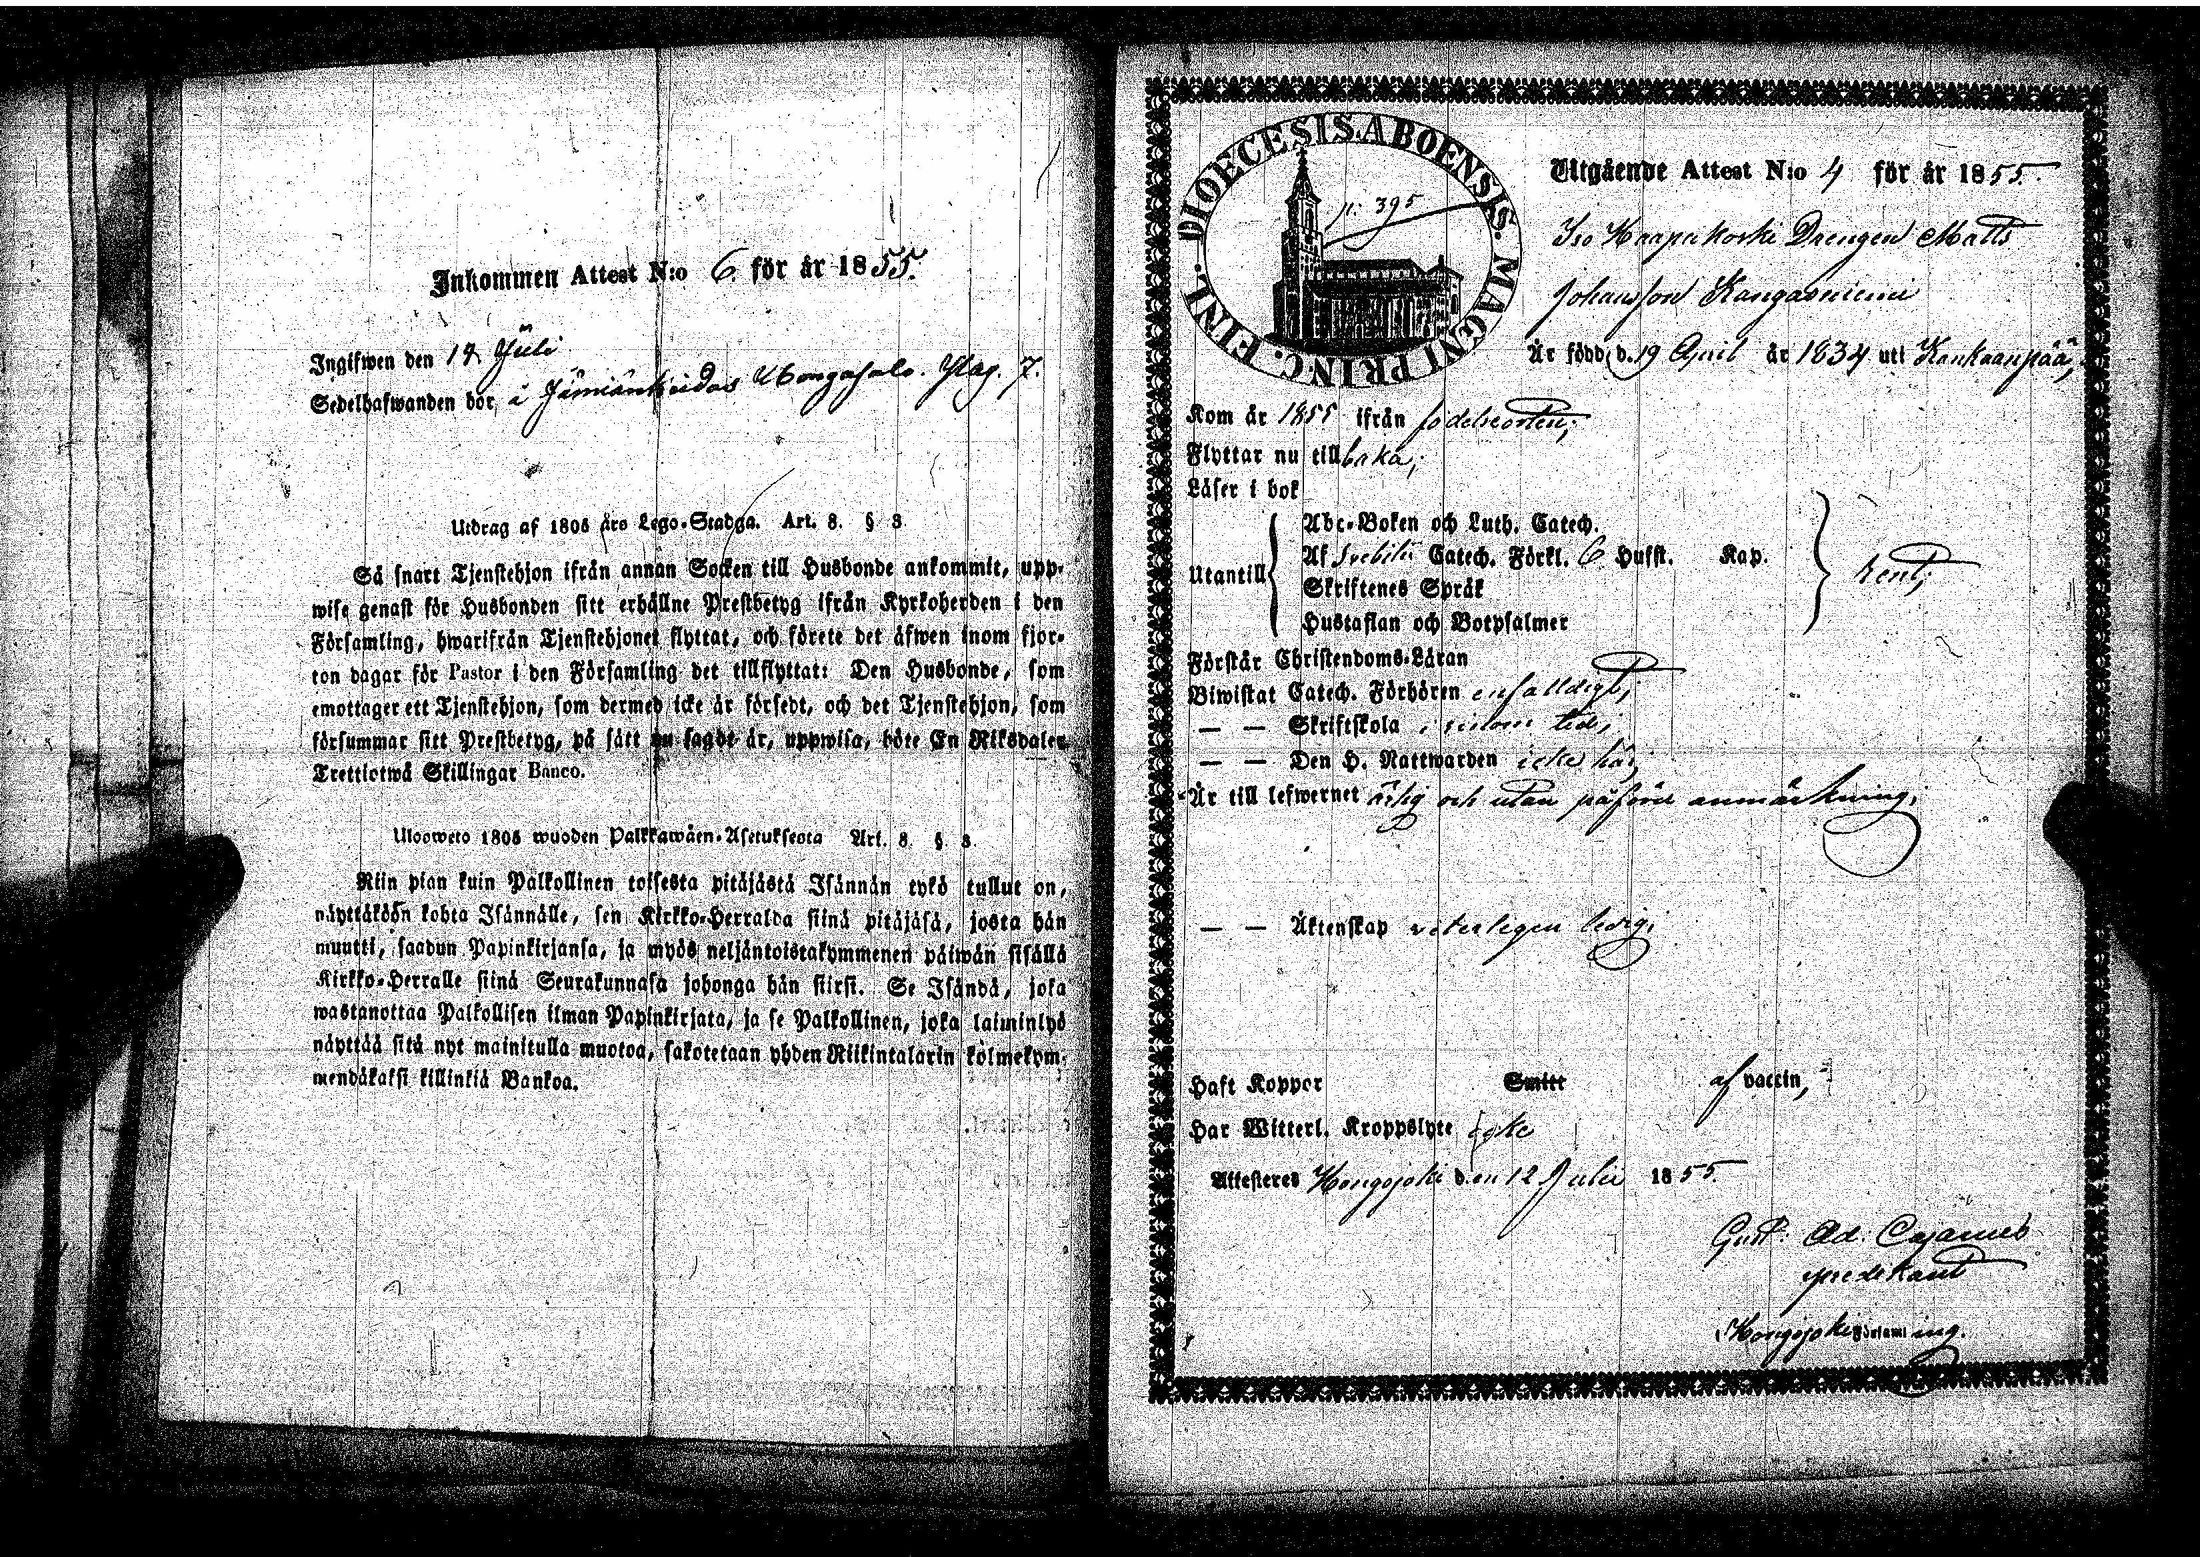 Inkommen Attest N:o 6. för år 1855.
Ingifwen den 17 Juli
Sedelhafwanden bor, i Jämiänkeidas Pag. 7.
Utdrag af 1805 års Lego-Stadga. Art. 8. § 3
Så snart Tjenstehjon ifrån annan Socken till Husbonde ankommit, upp-
wise genast för Husbonden sitt erhållne Prestbetyg ifrån Kyrkoherden i den
Församling, hwarifrån Tjenstehjonet flyttat, och förete det äfwen inom fjor-
ton dagar för Pastor i den Församling det tillflyttat: Den Husbonde, som
emottager ett Tjenstehjon, som dermed icke är försedt, och det Tjenstehjon, som
försummar sitt Prestbetyg, på sätt nu sagdt är, uppwisa, böte En Riksdaler
Trettiotwå Skillingar Banco.
Uloosweto 1805 wuoden Palkkawäen-Asetuksesta Art. 8. §. 3.
Niin pian kuin Palkollinen toisesta pitäjästä Isännän tykö tullut on,
näyttäköön kohta Isännälle, sen Kirkko-Herralda siinä pitäjäsä, josta hän
muutti, saadun Papinkirjansa, ja myös neljäntoistakymmenen päiwän sisällä
Kirkko-Herralle siinä Seurakunnasa johonga hän siirsi. Se Isändä, joka
wastanottaa Palkollisen ilman Papinkirjata, ja se Palkollinen, joka laiminlyö
näyttää sitä nyt mainitulla muotoa, sakotetaan yhden Riikintalarin kolmekym-
mendäkaksi killinkiä Bankoa.
DIOECESIS ABOENSIS. MAGNI PRINC. FINL.
p. 395
Utgående Attest N:o 4 för år 1855.
Iso Haapakoski Drengen Matts
Johansson Kangasniemi
Är född d. 19 April år 1834 uti Kankaanpää,
Kom år 1855 ifrån födelseorten;
Flyttar nu tillbaka;
Läser i bok
Utantill
Abc-Boken och Luth. Catech.
Af Svebilii Catech. Förkl. 6 Hufst. Kap.
Skriftenes Språk
Hustaflan och Botpsalmer
rent;
Förstår Christendoms-Läran
Biwistat Catech. Förhören enfalldigt;
— — Skriftskola i sinom tid;
— — Den H. Nattwarden icke här;
Är till lefwernet ärlig och utan påförd anmärkning;
— — Äktenskap veterligen ledig;
Haft Koppor Smitt af vaccin,
Har Witterl. Kroppslyte icke
Attesteres Hongojoki den 12 Julii 1855.
Gust. Ad. Cajanus
predikant
Hongojoki församling.